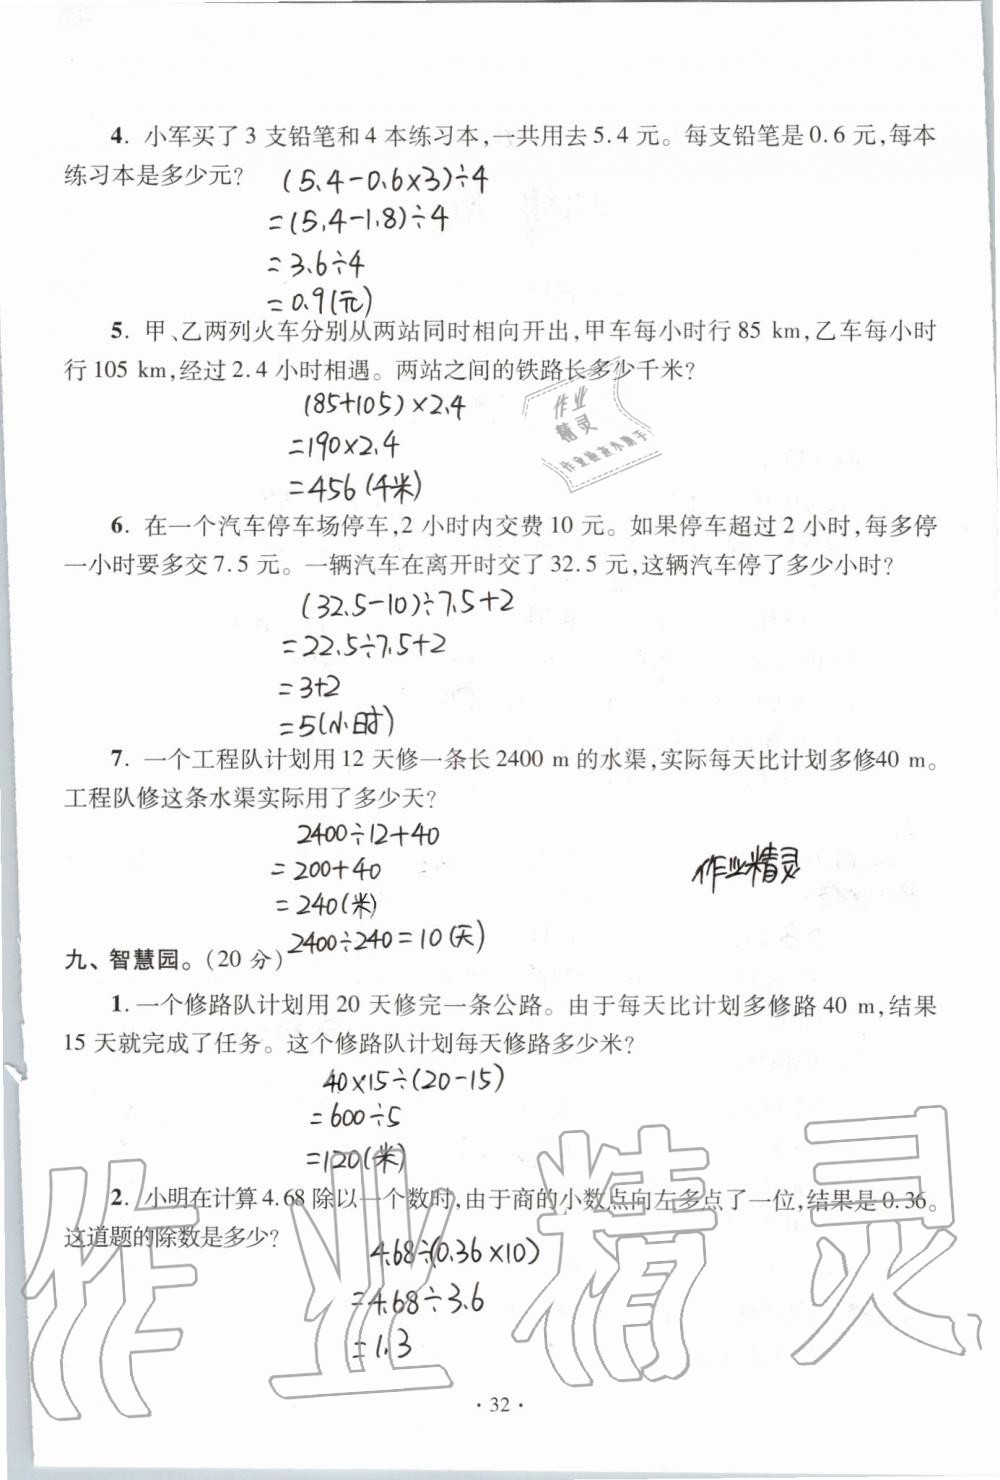 4. 小军买了3支铅笔和4本练习本,一共用去5.4元。每支铅笔是0.6元,每本
练习本是多少元?
(5.4-0.6×3)÷4
=(5.4-1.8)÷4
=3.6÷4
=0.9(元)
5. 甲、乙两列火车分别从两站同时相向开出,甲车每小时行85 km,乙车每小时
行105 km,经过2.4小时相遇。两站之间的铁路长多少千米?
(85+105)×2.4
=190×2.4
=456(千米)
作业
精灵
作业检查小助手
6. 在一个汽车停车场停车,2小时内交费10元。如果停车超过2小时,每多停
一小时要多交7.5元。一辆汽车在离开时交了32.5元,这辆汽车停了多少小时?
(32.5-10)÷7.5+2
=22.5÷7.5+2
=3+2
=5(小时)
7. 一个工程队计划用12天修一条长2400 m的水渠,实际每天比计划多修40 m。
工程队修这条水渠实际用了多少天?
2400÷12+40
=200+40
=240(米)
2400÷240=10(天)
作业精灵
九、智慧园。(20分)
1. 一个修路队计划用20天修完一条公路。由于每天比计划多修路40 m,结果
15天就完成了任务。这个修路队计划每天修路多少米?
40×15÷(20-15)
=600÷5
=120(米)
2. 小明在计算4.68除以一个数时,由于商的小数点向左多点了一位,结果是0.36。
这道题的除数是多少?
4.68÷(0.36×10)
=4.68÷3.6
=1.3
作业精灵
·32·